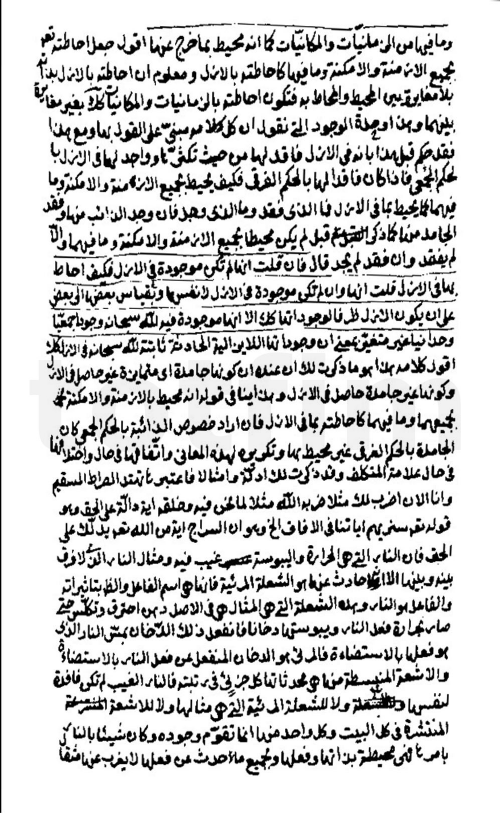 وما فيها من الزمانيات والمكانيات كما انه محيط بما خرج عنها اقول جعل احاطته
بجميع الازمنة والامكنة وما فيها كاحاطته بالازل ومعلوم ان احاطته بالازل بذاته
بلا مغايرة بين المحيط والمحاط به فتكون احاطته بالزمانيات والمكانيات كلها بغير مغايرة
بينهما وهذا وحدة الوجود التي نقول ان كل كلامه مبني على القول بها ومع هذا
فقد حكم قبل هذا بانه في الازل فاقد لها من حيث تكثرها وواجد لها في الازل
بحكم الجمعي فاذا كان فاقدا لها بالحكم الفرقي فكيف يحيط بجميع الازمنة والامكنة وما
فيهما كما يحيط بما في الازل فما الذي فقد وما الذي وجد فان وجد الذائب منها وفقد
الجامد منها كما ذكر قبل لم يكن محيطا بجميع الازمنة والامكنة وما فيهما والا
لم يفقد وان فقد لم يجد قال فان قلت انها لم تكن موجودة في الازل فكيف احاط
بها في الازل قلت انها وان لم تكن موجودة في الازل لانفسها وبقياس بعضها الى بعض
على ان يكون الازل ظرفا لوجوداتها كذلك الا انها موجودة فيه لله سبحانه وجودا جمعيا
وحدانيا غير متغير بمعنى ان وجوداتها اللايزالية الحادثة ثابتة لله سبحانه في الازل كذلك
اقول كلامه هذا هو ما ذكرت لك ان عنده ان كونها جامدة اى متمايزة غير حاصل في الازل
وكونها غير جامدة حاصل في الازل وهذا ينافي قوله انه محيط بالازمنة والامكنة
بجميعهما وما فيهما كاحاطته بما في الازل فان اراد خصوص الذائبة بالحكم الجمعي كان
الجامدة بالحكم الفرقي غير محيط بها وتكريره لهذه المعاني واتفاقها في حال واختلافها
في حال علامة المتكلف وقد ذكرت لك ادلة وامثالا فاعتبروا تهتد الصراط المستقيم
وانا الان اضرب لك مثلا ضربه الله مثلا لما نحن فيه وخلقه اية دالة على الحق وهو
قوله تعالى سنريهم اياتنا في الافاق الخ وهو ان السراج اية من الله تعالى يدلك على
الحق فان النار التي هي الحرارة واليبوسة غيب فيه ومثال النار الذي لا فرق
بينه وبينها الا انه حادث عنها هو الشعلة المرئية فانها هي اسم الفاعل والظاهر بتاثيراته
والفاعل هو النار وهذه الشعلة التي هي المثال هي في الاصل دهن احترق وتكلس حتى
صار بحرارة فعل النار ويبوستها دخانا فانفعل ذلك الدخان بمس النار الذي
هو فعلها بالاستضاءة فالمرئي هو الدخان المنفعل عن فعل النار بالاستضاءة
والاشعة المنبسطة منها هي محدثاتها كل جزء في رتبته فالنار الغيب لم تكن فاقدة
لنفسها ولا للشعلة المرئية التي هي مثالها ولا للاشعة
المنتشرة في كل البيت وكل واحد منها انما تقوم وجوده وكان شيئا بالنار
بامرها فهي محيطة بذاتها وفعلها وبجميع ما احدث عن فعلها لا يعزب عنها مثقال